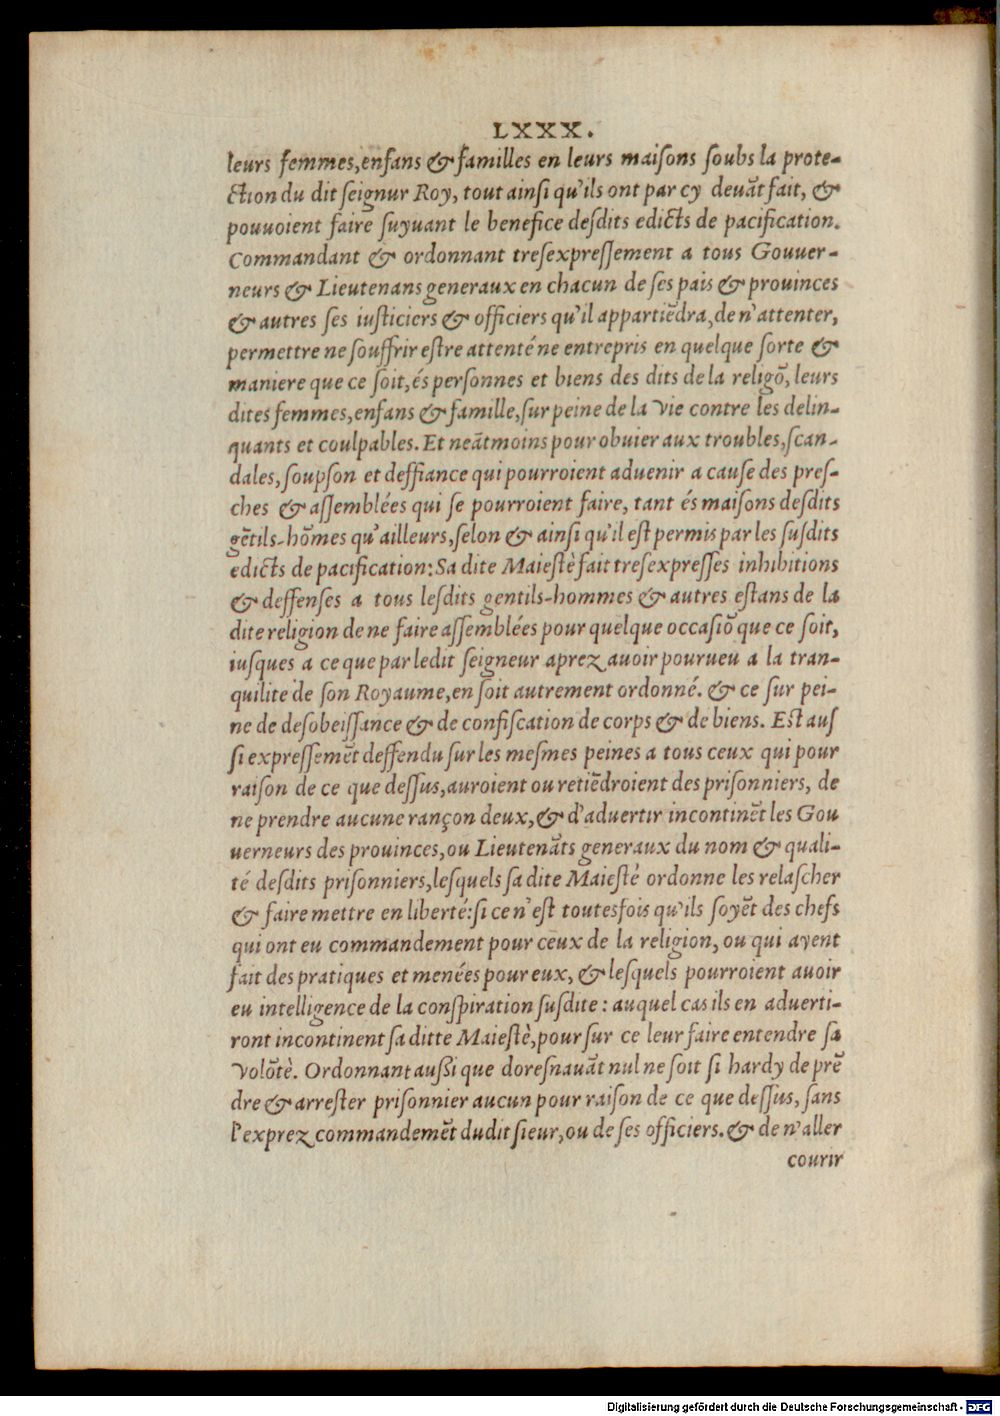 LXXX.
leurs femmes, enfans & familles en leurs maisons soubs la prote-
ction du dit seignur Roy, tout ainsi qu'ils ont par cy devãt fait, &
pouuoient faire suyuant le benefice desdits edicts de pacification.
Commandant & ordonnant tresexpressement a tous Gouuer-
neurs & Lieutenans generaux en chacun de ses pais & prouinces
& autres ses iusticiers & officiers qu'il appartiẽdra, de n'attenter,
permettre ne souffrir estre attenté ne entrepris en quelque sorte &
maniere que ce soit, és personnes et biens des dits de la religõ, leurs
dites femmes, enfans & famille, sur peine de la vie contre les delin-
quants et coulpables. Et neãtmoins pour obuier aux troubles, scan-
dales, soupson et deffiance qui pourroient aduenir a cause des pres-
ches & assemblées qui se pourroient faire, tant és maisons desdits
gẽtils-hõmes qu'ailleurs, selon & ainsi qu'il est permis par les susdits
edicts de pacification: Sa dite Maiestè fait tresexpresses inhibitions
& deffenses a tous lesdits gentils-hommes & autres estans de la
dite religion de ne faire assemblées pour quelque occasiõ que ce soit,
iusques a ce que par ledit seigneur aprez auoir pourueu a la tran-
quilite de son Royaume, en soit autrement ordonné. & ce sur pei-
ne de desobeissance & de confiscation de corps & de biens. Est aus
si expressemẽt deffendu sur les mesmes peines a tous ceux qui pour
raison de ce que dessus, auroient ou retiẽdroient des prisonniers, de
ne prendre aucune rançon deux, & d'aduertir incontinẽt les Gou
uerneurs des prouinces, ou Lieutenãts generaux du nom & quali-
té desdits prisonniers, lesquels sa dite Maiestè ordonne les relascher
& faire mettre en liberté: si ce n'est toutesfois qu'ils soyẽt des chefs
qui ont eu commandement pour ceux de la religion, ou qui ayent
fait des pratiques et menées pour eux, & lesquels pourroient auoir
eu intelligence de la conspiration susdite: auquel cas ils en aduerti-
ront incontinent sa ditte Maiestè, pour sur ce leur faire entendre sa
volõtè. Ordonnant aussi que doresnauãt nul ne soit si hardy de prẽ
dre & arrester prisonnier aucun pour raison de ce que dessus, sans
l'exprez commandemẽt dudit sieur, ou de ses officiers. & de n'aller
courir
Digitalisierung gefördert durch die Deutsche Forschungsgemeinschaft - DFG